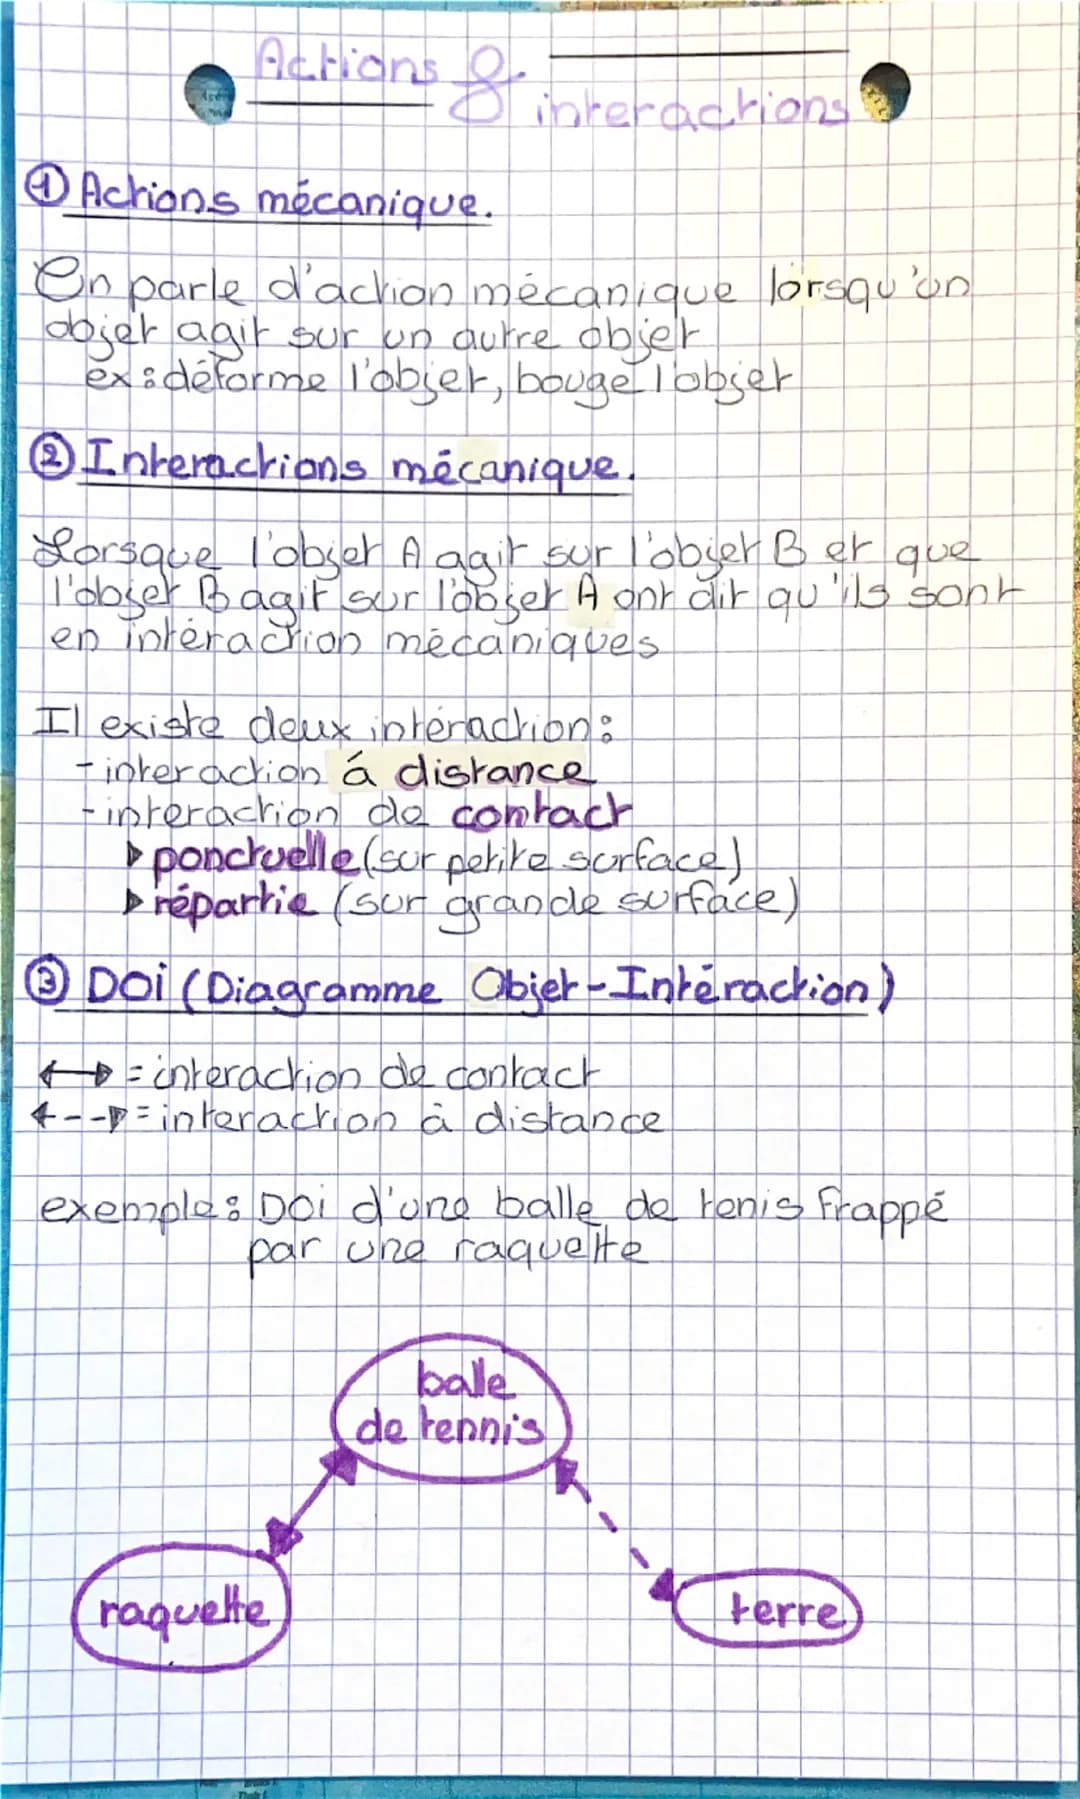 Actions &
interactions
① Actions mécanique.
On parle d'action mécanique lorsqu'un
objet agit sur un autre objet
ex: déforme l'objet, bouge l'objet
② Interactions mécanique.
Lorsque l'objet A agit sur l'objet B et que
l'objet B agit sur l'objet A ont dit qu'ils sont
en intéraction mécaniques
Il existe deux intéraction:
- interaction á distance
- interaction de contact
▸ ponctuelle (sur petite surface)
▸ répartie (sur grande surface)
③ DOi (Diagramme Objet-Intéraction)
↔ = interaction de contact
<--> = interaction à distance
exemple: DOi d'une balle de tenis frappé
par une raquette
balle
de tennis
raquette
terre